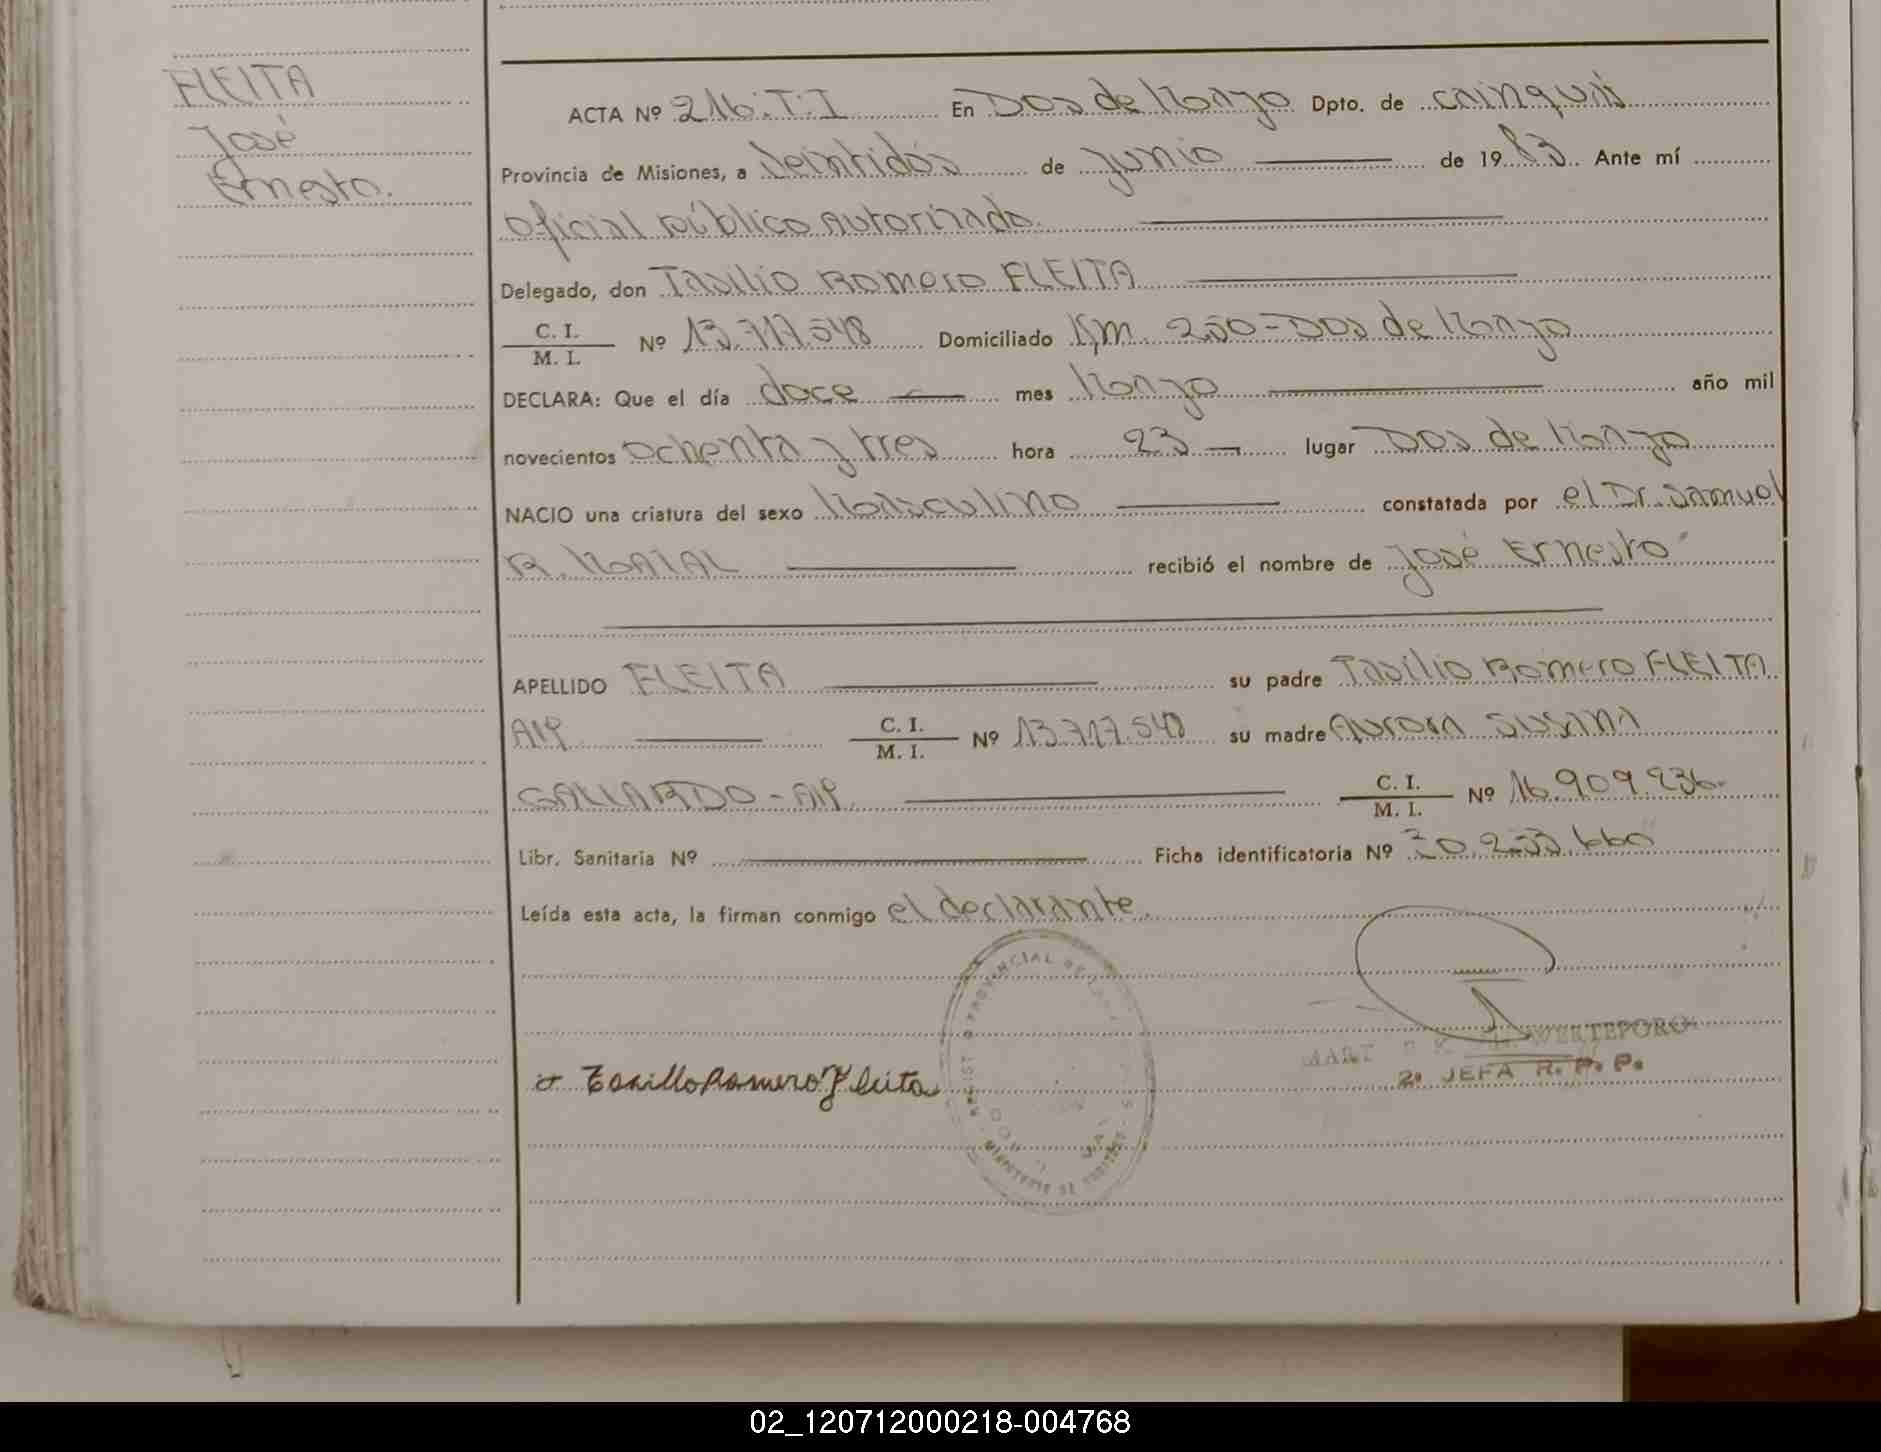 FLEITA
José
Ernesto.
ACTA Nº 216.T.I En Dos de Mayo Dpto. de Cainguás
Provincia de Misiones, a veintidós de junio de 1983 Ante mí
Oficial Público Autorizado.
Delegado, don Tasilio Romero FLEITA
C. I.
M. I. Nº 13.717.548 Domiciliado Km. 250-Dos de Mayo
DECLARA: Que el día doce mes Mayo año mil
novecientos ochenta y tres hora 23 lugar Dos de Mayo
NACIO una criatura del sexo Masculino constatada por el Dr. Samuel
R. recibió el nombre de José Ernesto
APELLIDO FLEITA su padre Tasilio Romero FLEITA
C. I.
M. I. Nº 13.717.548 su madre Aurora Susana
GALLARDO - C. I.
M. I. Nº 16.909.236.
Libr. Sanitaria Nº Ficha identificatoria Nº 30.255.660
Leída esta acta, la firman conmigo el declarante.
PROVINCIAL DE
WERTEPORO
Tasilio Romero Fleita
2ª JEFA R. P. P.
02_120712000218-004768